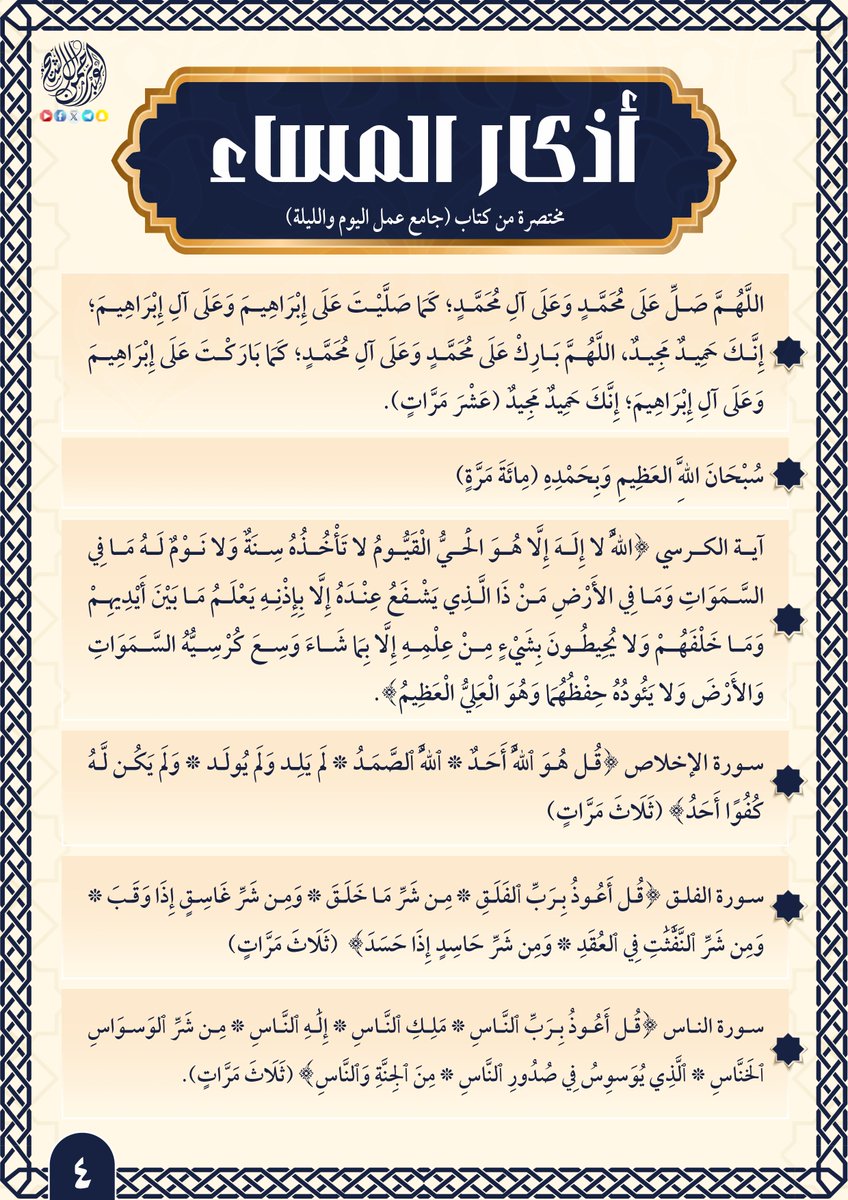 أذكار المساء
مختصرة من كتاب (جامع عمل اليوم والليلة)
اللَّهُمَّ صَلِّ عَلَى مُحَمَّدٍ وَعَلَى آلِ مُحَمَّدٍ؛ كَمَا صَلَّيْتَ عَلَى إِبْرَاهِيمَ وَعَلَى آلِ إِبْرَاهِيمَ؛
إِنَّكَ حَمِيدٌ مَجِيدٌ، اللَّهُمَّ بَارِكْ عَلَى مُحَمَّدٍ وَعَلَى آلِ مُحَمَّدٍ؛ كَمَا بَارَكْتَ عَلَى إِبْرَاهِيمَ
وَعَلَى آلِ إِبْرَاهِيمَ؛ إِنَّكَ حَمِيدٌ مَجِيدٌ (عَشْرَ مَرَّاتٍ).
سُبْحَانَ اللَّهِ العَظِيمِ وَبِحَمْدِهِ (مِائَةَ مَرَّةٍ)
آية الكرسي ﴿اللهُ لا إِلَهَ إِلَّا هُوَ الْحَيُّ الْقَيُّومُ لا تَأْخُذُهُ سِنَةٌ وَلا نَوْمٌ لَهُ مَا فِي
السَّمَوَاتِ وَمَا فِي الأَرْضِ مَنْ ذَا الَّذِي يَشْفَعُ عِنْدَهُ إِلَّا بِإِذْنِهِ يَعْلَمُ مَا بَيْنَ أَيْدِيهِمْ
وَمَا خَلْفَهُمْ وَلا يُحِيطُونَ بِشَيْءٍ مِنْ عِلْمِهِ إِلَّا بِمَا شَاءَ وَسِعَ كُرْسِيُّهُ السَّمَوَاتِ
وَالأَرْضَ وَلا يَئُودُهُ حِفْظُهُمَا وَهُوَ الْعَلِيُّ الْعَظِيمُ﴾.
سورة الإخلاص ﴿قُل هُوَ ٱللَّهُ أَحَدٌ * ٱللَّهُ ٱلصَّمَدُ * لَم يَلِد وَلَم يُولَد * وَلَم يَكُن لَّهُ
كُفُوًا أَحَدُ﴾ (ثَلَاثَ مَرَّاتٍ)
سورة الفلق ﴿قُل أَعُوذُ بِرَبِّ ٱلفَلَقِ * مِن شَرِّ مَا خَلَقَ * وَمِن شَرِّ غَاسِقٍ إِذَا وَقَبَ *
وَمِن شَرِّ ٱلنَّفَّٰثَٰتِ فِي ٱلعُقَدِ * وَمِن شَرِّ حَاسِدٍ إِذَا حَسَدَ﴾ (ثَلَاثَ مَرَّاتٍ)
سورة الناس ﴿قُل أَعُوذُ بِرَبِّ ٱلنَّاسِ * مَلِكِ ٱلنَّاسِ * إِلَٰهِ ٱلنَّاسِ * مِن شَرِّ ٱلوَسوَاسِ
ٱلخَنَّاسِ * ٱلَّذِي يُوَسوِسُ فِي صُدُورِ ٱلنَّاسِ * مِنَ ٱلجِنَّةِ وَٱلنَّاسِ﴾ (ثَلَاثَ مَرَّاتٍ).
٤